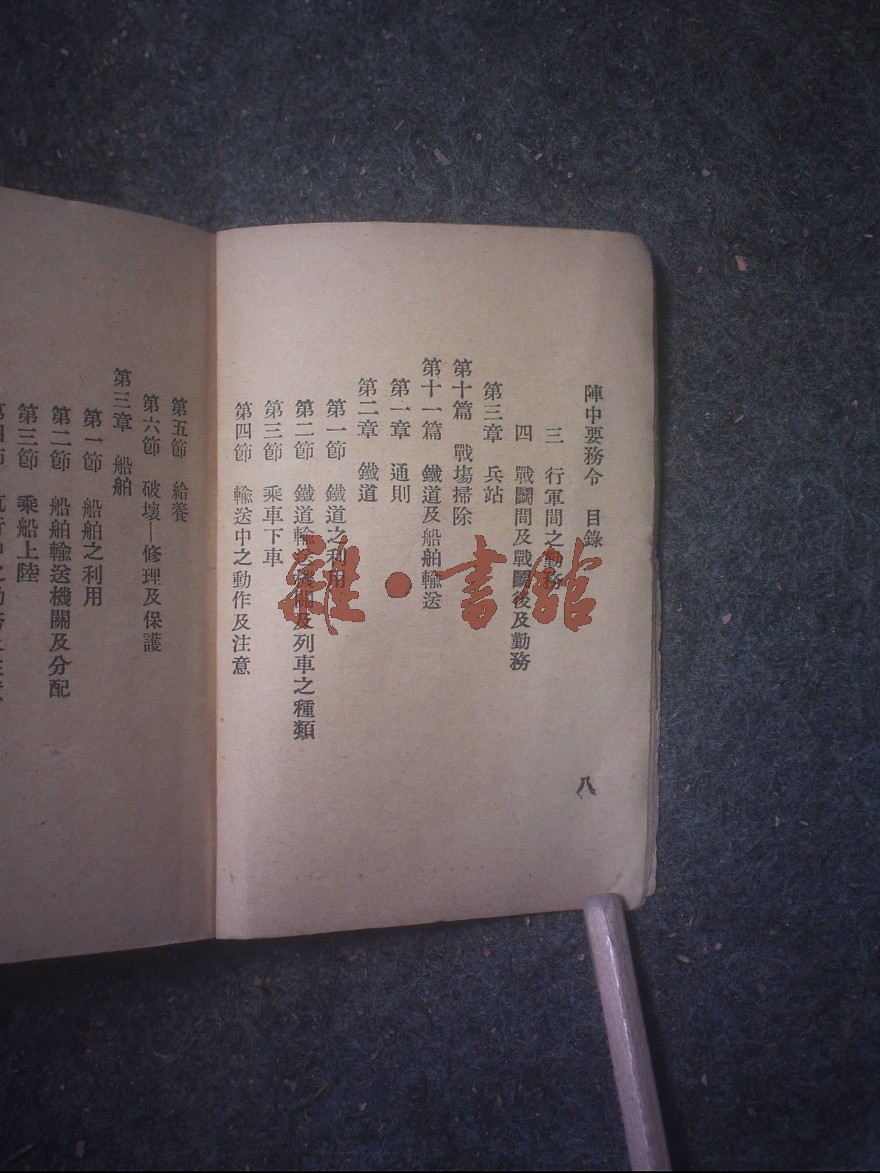 陣中要務令 目錄
三 行軍間之勤務
四 戰鬪間及戰鬪後及勤務
第三章 兵站
第十篇 戰場掃除
第十一篇 鐵道及船舶輸送
第一章 通則
第二章 鐵道
第一節 鐵道之利用
第二節 鐵道輸送機關及列車之種類
第三節 乘車下車
第四節 輸送中之動作及注意
八
第五節 給養
第六節 破壞—修理及保護
第三章 船舶
第一節 船舶之利用
第二節 船舶輸送機關及分配
第三節 乘船上陸
雜·書館